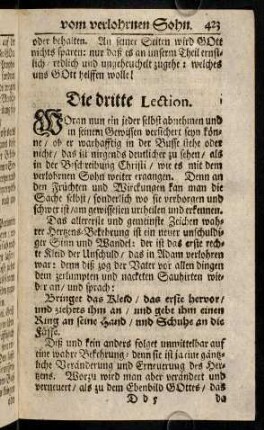 vom verlohrnen Sohn. 423
oder behalten. An seiner Seiten wird GOtt
nichts sparen: nur daß es an unserm Theil ernst-
lich / redlich und ungeheuchelt zugehe: welches
uns GOtt helffen wolle!
Die dritte Lection.
WOran nun ein jeder selbst abnehmen und
in seinem Gewissen versichert seyn kön-
ne / ob er warhafftig in der Busse stehe oder
nicht / das ist nirgends deutlicher zu sehen / als
in der Beschreibung Christi / wie es mit dem
verlohrnen Sohn weiter ergangen. Denn an
den Früchten und Würckungen kan man die
Sache selbst / sonderlich wo sie verborgen und
schwer ist / am gewissesten urtheilen und erkennen.
Das allererste und gemeinste Zeichen wah-
rer Hertzens-Bekehrung ist ein neuer unschuldi-
ger Sinn und Wandel: der ist das erste rech-
te Kleid der Unschuld / das in Adam verlohren
war: denn diß zog der Vater vor allen dingen
dem zerlumpten und nackten Sauhirten wie-
der an / und sprach:
Bringet das Kleid / das erste hervor /
und ziehets ihm an / und gebt ihm einen
Ring an seine Hand / und Schuhe an die
Füsse.
Diß und kein anders folget unmittelbar auf
eine wahre Bekehrung / denn sie ist ja eine gäntz-
liche Veränderung und Erneuerung des Her-
tzens. Worzu wird man aber verändert und
verneuert / als zu dem Ebenbild GOttes / das
D d 5 da